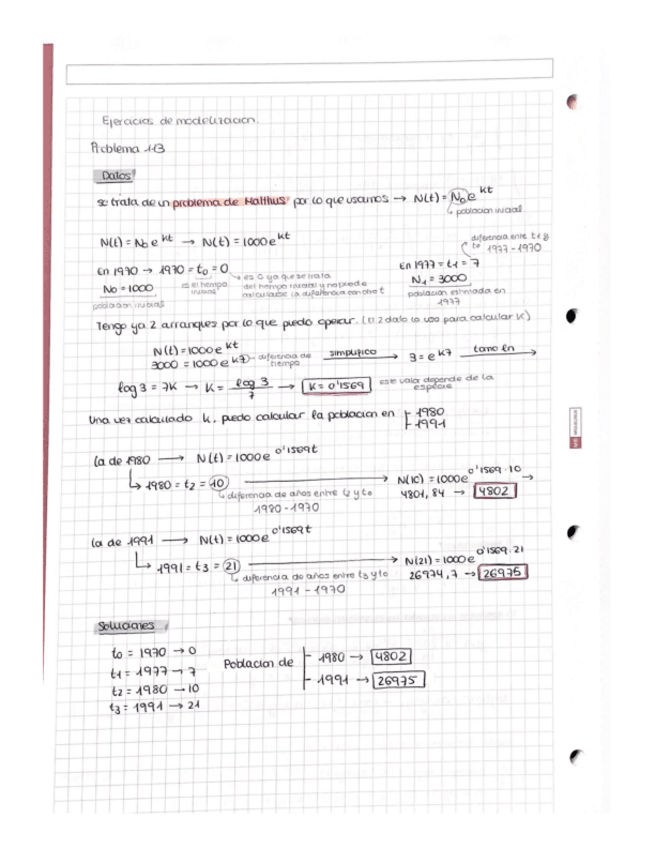 Ejercicios de modelización.
Problema 113
Datos
se trata de un problema de Malthus por lo que usamos → N(t) = N₀e^kt
población inicial
N(t) = N₀ e^kt → N(t) = 1000e^kt
diferencia entre t₁ y t₀ 1977-1970
En 1970 → 1970 = t₀ = 0
es 0 ya que se trata
En 1977 = t₁ = 7
N₀ = 1000
es el tiempo inicial
del tiempo inicial y no puede
N₁ = 3000
población inicial
población estimada en 1977
Tengo ya 2 arranques por lo que puedo operar. (El 2 dato lo uso para calcular K)
N(t) = 1000e^kt
3000 = 1000e^k7 → diferencia de tiempo
simplifico → 3 = e^k7 tomo ln →
log 3 = 7K → K = log 3 / 7 → K = 0'1569
este valor depende de la especie
Una vez calculado k, puedo calcular la población en
1980
1991
la de 1980 → N(t) = 1000e^0'1569t
1980 = t₂ = 10 → N(10) = 1000e^0'1569·10 →
diferencia de años entre t₂ y t₀
4801,84 → 4802
1980 - 1970
la de 1991 → N(t) = 1000e^0'1569t
1991 = t₃ = 21 → N(21) = 1000e^0'1569·21
diferencia de años entre t₃ y t₀
26974,7 → 26975
1991 - 1970
Soluciones
t₀ = 1970 → 0
t₁ = 1977 → 7
t₂ = 1980 → 10
t₃ = 1991 → 21
Población de
1980 → 4802
1991 → 26975